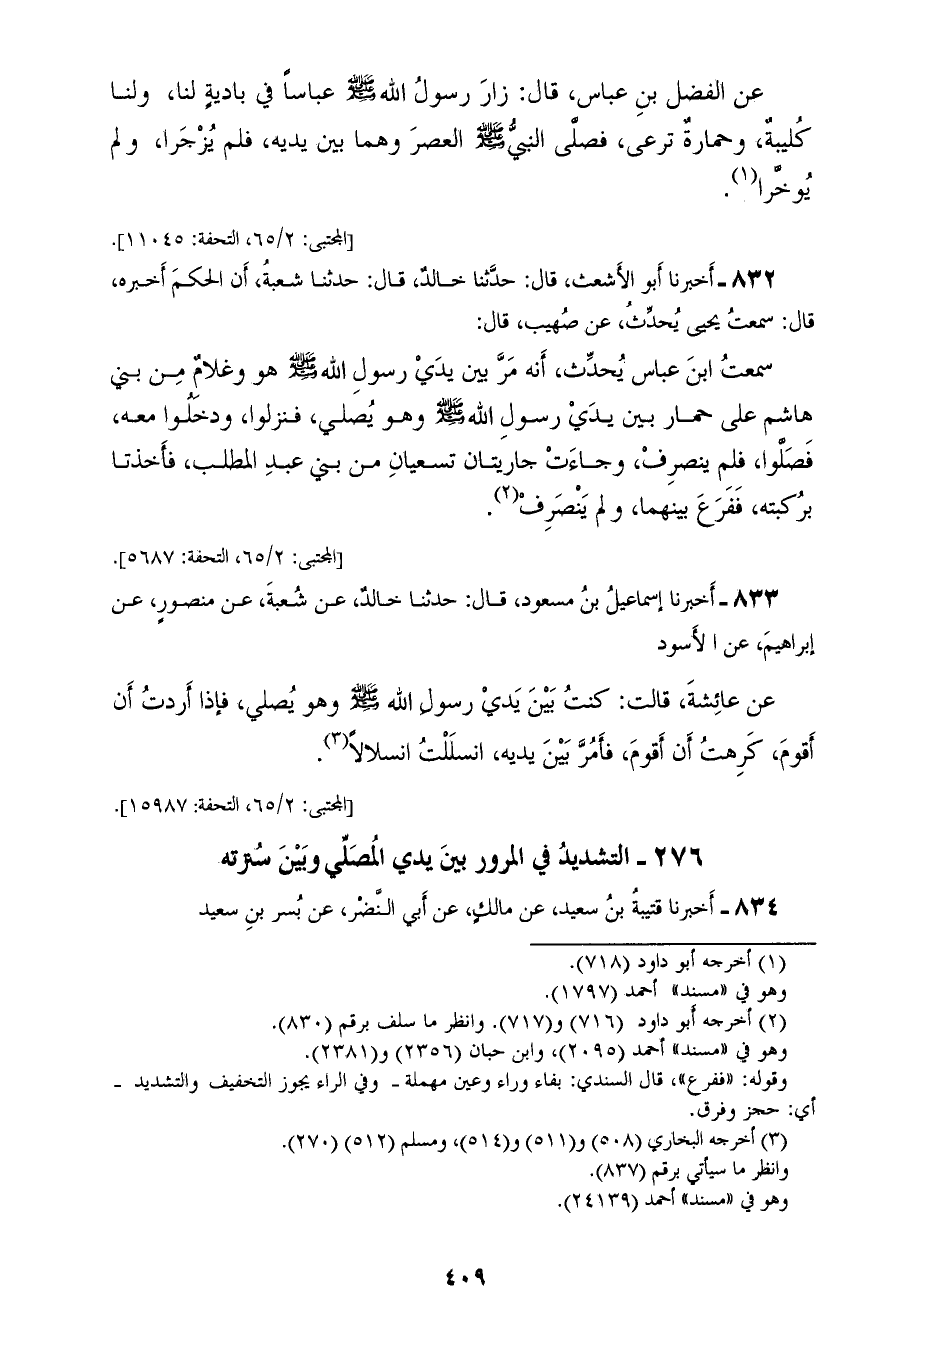 عن الفضل بنِ عباس، قال: زارَ رسولُ الله ﷺ عباساً في باديةٍ لنا، ولنا
كُليبةٌ، وحمارةٌ ترعى، فصلَّى النبيُّ ﷺ العصرَ وهما بين يديه، فلم يُزْجَرا، ولم
يُوخَّرا(١).
[المجتبى: ٦٥/٢، التحفة: ١١٠٤٥].
٨٣٢ ـ أخبرنا أبو الأشعث، قال: حدَّثنا خالدٌ، قال: حدثنا شعبةُ، أن الحكمَ أخبره،
قال: سمعتُ يحيى يُحدِّثُ، عن صُهيب، قال:
سمعتُ ابنَ عباس يُحدِّث، أنه مَرَّ بين يدَيْ رسولِ الله ﷺ هو وغلامٌ مِن بني
هاشم على حمار بين يدَيْ رسولِ الله ﷺ وهو يُصلي، فنزلوا، ودخلُوا معه،
فَصَلَّوا، فلم ينصرِفْ، وجاءَتْ جاريتان تسعيانِ من بني عبدِ المطلب، فأخذتا
برُكبته، فَفَرَعَ بينهما، ولم يَنْصَرِفْ(٢).
[المجتبى: ٦٥/٢، التحفة: ٥٦٨٧].
٨٣٣ ـ أخبرنا إسماعيلُ بنُ مسعود، قال: حدثنا خالدٌ، عن شُعبةَ، عن منصورٍ، عن
إبراهيمَ، عن الأسود
عن عائِشةَ، قالت: كنتُ بَيْنَ يَديْ رسولِ الله ﷺ وهو يُصلي، فإذا أَردتُ أن
أقومَ، كَرِهتُ أن أقومَ، فأمُرَّ بَيْنَ يديه، انسلَلْتُ انسلالاً(٣).
[المجتبى: ٦٥/٢، التحفة: ١٥٩٨٧].
٢٧٦ ـ التشديدُ في المرور بينَ يدي المُصَلِّي وبَيْنَ سُترته
٨٣٤ ـ أخبرنا قتيبةُ بنُ سعيد، عن مالكٍ، عن أبي النَّضْر، عن بُسر بنِ سعيد
(١) أخرجه أبو داود (٧١٨).
وهو في «مسند» أحمد (١٧٩٧).
(٢) أخرجه أبو داود (٧١٦) و(٧١٧). وانظر ما سلف برقم (٨٣٠).
وهو في «مسند» أحمد (٢٠٩٥)، وابن حبان (٢٣٥٦) و(٢٣٨١).
وقوله: «ففرع»، قال السندي: بفاء وراء وعين مهملة ـ وفي الراء يجوز التخفيف والتشديد ـ
أي: حجز وفرق.
(٣) أخرجه البخاري (٥٠٨) و(٥١١) و(٥١٤)، ومسلم (٥١٢) (٢٧٠).
وانظر ما سيأتي برقم (٨٣٧).
وهو في «مسند» أحمد (٢٤١٣٩).
٤٠٩